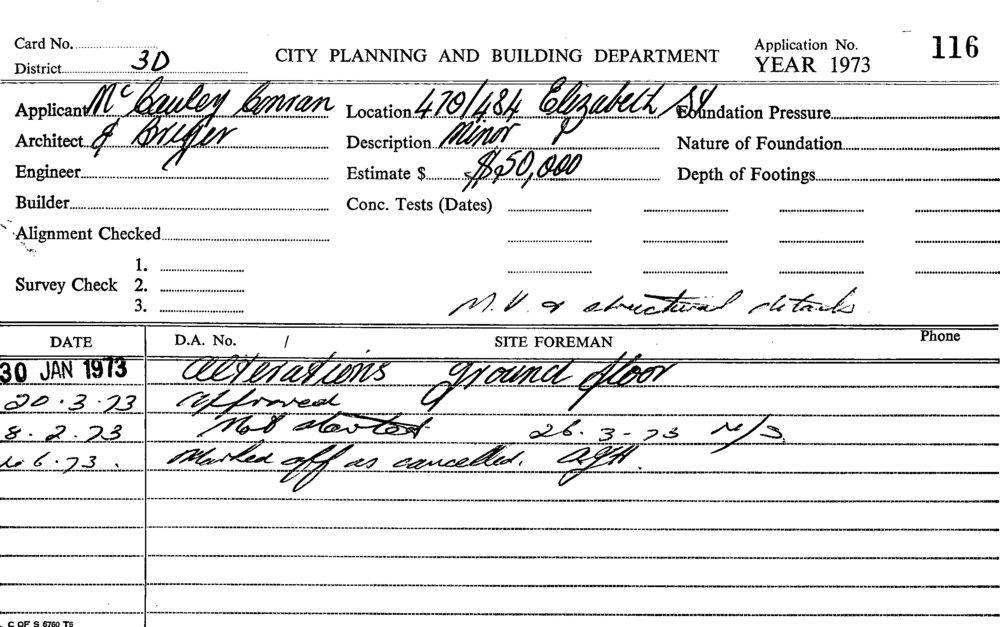 Card No.
District 3D
CITY PLANNING AND BUILDING DEPARTMENT
Application No. 116
YEAR 1973
Applicant McCauley Conran
Location 470/484 Elizabeth St
Foundation Pressure
Architect &
Description Minor
Nature of Foundation
Engineer
Estimate $ $50,000
Depth of Footings
Builder
Conc. Tests (Dates)
Alignment Checked
Survey Check 1.
2.
3.
M.V. & structural details
DATE D.A. No. / SITE FOREMAN Phone
30 JAN 1973 Alterations ground floor
20.3.73 approved
8.2.73 Not started 26.3-73 N/S
6.73. Marked off as cancelled.
C OF S 6760 T6